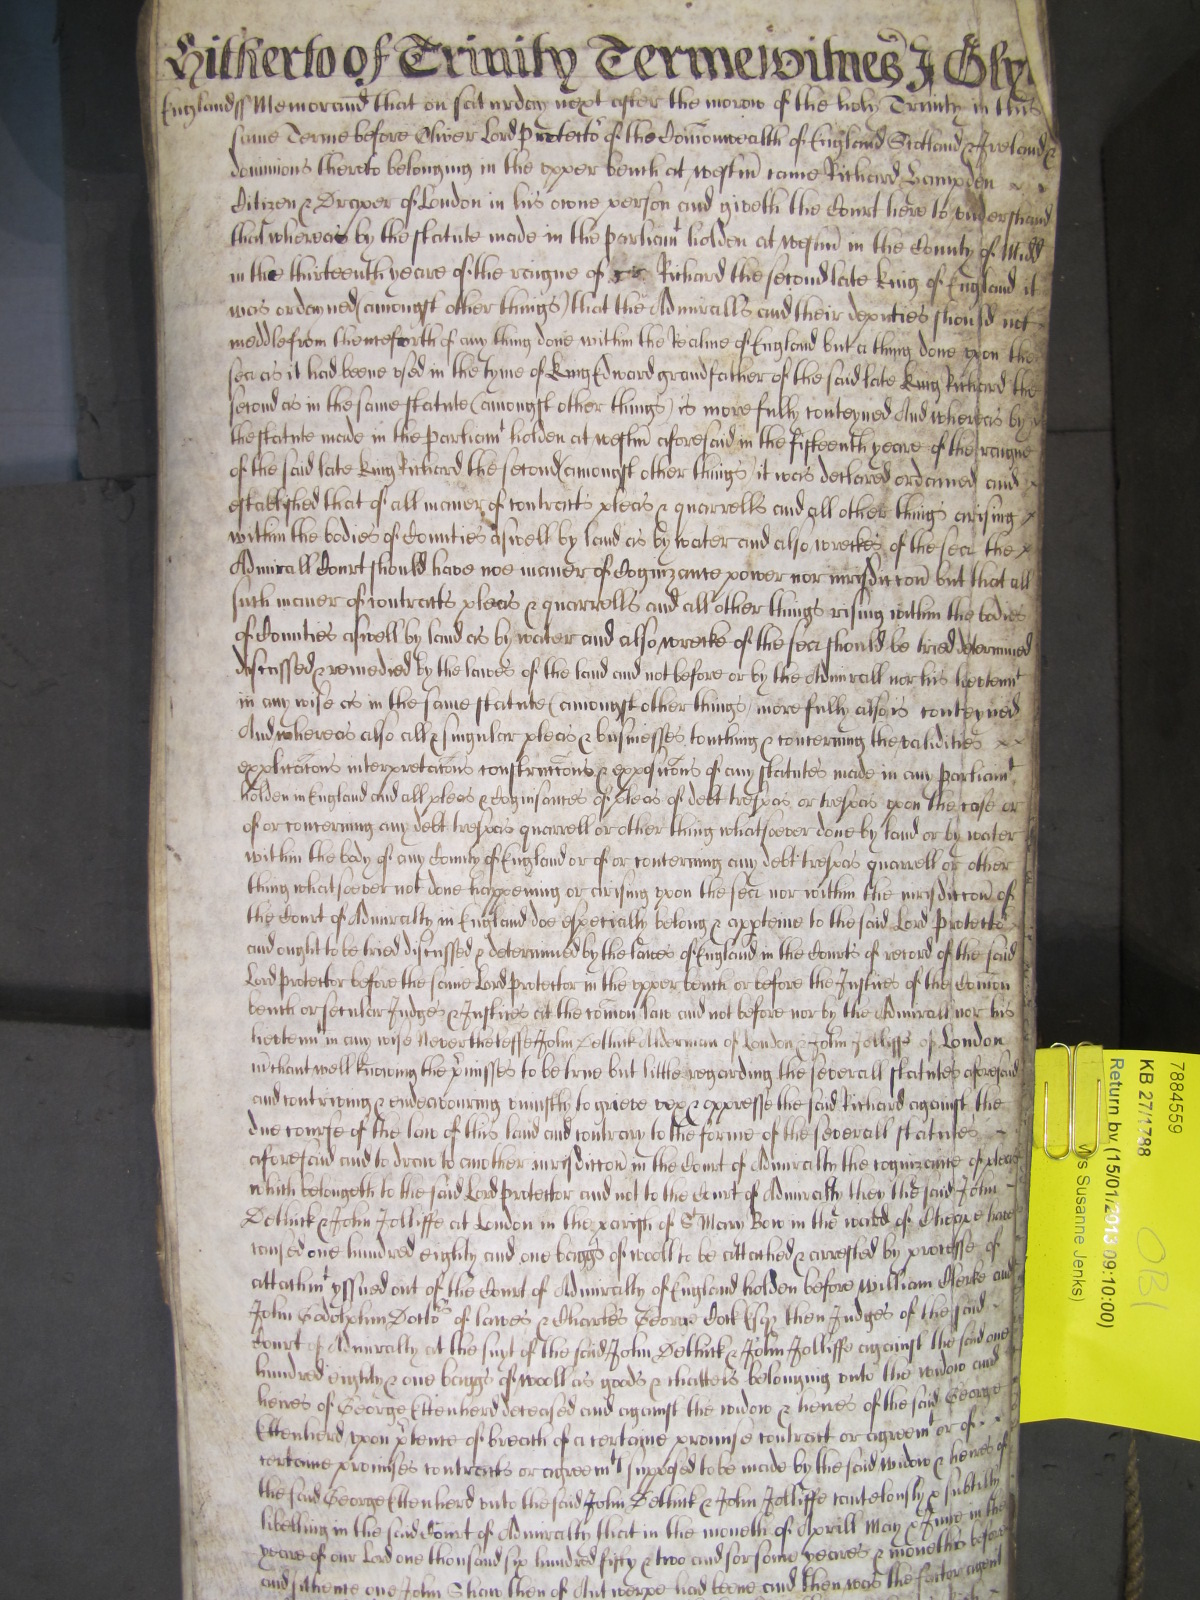 Hitherto of Trinity Terme witnes J Gly
Englandss Memorand that on saturday next after the morow of the holy Trinity in this
same Terme before Oliver Lord Protector of the Comonwealth of England Scotland & Ireland &
dominions thereto belonging in the upper bench at westm came Richard Bampden
Citizen & Draper of London in his owne person and giveth the Court here to understand
that whereas by the statute made in the parliamt holden at westm in the County of Midd
in the thirteenth yeare of the raigne of Richard the second late King of England it
was ordeyned (amongst other things) that the Admiralls and their deputies should not
meddle from thenceforth of any thing done within the Realme of England but a thing done upon the
sea as it had beene used in the tyme of King Edward grandfather of the said late King Richard the
second as in the same statute (amongst other things) is more fully conteyned And whereas by
the statute made in the Parliamt holden at westm aforesaid in the fifteenth yeare of the raigne
of the said late King Richard the second (amongst other things) it was declared ordained and
established that of all maner of contracts pleas & quarrells and all other things arising
within the bodies of Counties aswell by land as by water and also wreckes of the sea the
Admirall Court should have noe maner of Cognizance power nor jurisdiccon but that all
such maner of contracts pleas & quarrells and all other things rising within the bodies
of Counties aswell by land as by water and also wrecke of the sea should be tried determined
discussed & remedied by the lawes of the land and not before or by the Admirall nor his lieutennt
in any wise as in the same statute (amongst other things) more fully also is conteyned
And whereas also all & singular pleas & businesses touching & concerning the validities
explicacons interpretacons construccons & exposicons of any statutes made in any parliamt
holden in England and all pleas & Cognisances of pleas of debt trespas or trespas upon the case or
of or concerning any debt trespas quarrell or other thing whatsoever done by land or by water
within the body of any County of England or of or concerning any debt trespas quarrell or other
thing whatsoever not done happening or arising upon the sea nor within the jurisdiccon of
the Court of Admiralty in England doe especially belong & apperteine to the said Lord Protector
and ought to be tried discussed & determined by the lawes of England in the Courts of record of the said
Lord Protector before the same Lord Protector in the upper bench or before the Justices of the Comon
bench or secular Judges & Justices at the comon law and not before nor by the Admirall nor his
lieutennt in any wise Neverthelesse John Dethick Alderman of London & John Jolliffe of London
mchant well knowing the pmisses to be true but little regarding the severall statutes aforesaid
and contriving & endeavouring unjustly to grieve vex & oppresse the said Richard against the
due course of the law of this land and contrary to the forme of the severall statutes
aforesaid and to draw to another jurisdiccon in the Court of Admiralty the cognizance of pleas
which belongeth to the said Lord Protector and not to the Court of Admiralty they the said John
Dethick & John Jolliffe at London in the parish of St Mary Bow in the ward of Cheape have
caused one hundred eighty and one baggs of wooll to be attached & arrested by processe of
attachmt yssued out of the Court of Admiralty of England holden before William Clerke and
John Godolphin Doctors of lawes & Charles George Cock Esqr then Judges of the said
Court of Admiralty at the suyt of the said John Dethick & John Jolliffe against the said one
hundred eighty & one baggs of wooll as goods & chattels belonging unto the widow and
heires of George Ettenherd deceased and against the widow & heires of the said George
Ettenherd upon ptence of breach of a certaine promise contract or agreemt or of
certaine promises contracts or agreemts supposed to be made by the said widow & heires of
the said George Ettenherd unto the said John Dethick & John Jolliffe cautelously & subtilly
libelling in the said Court of Admiralty that in the moneth of Aprill May & June in the
yeare of our Lord one thousand six hundred fifty & two and for some yeares & moneths before
and sithence one John Shaw then of Antwerpe had beene and then was the factor agent
7884559
KB 27/1788
Return by (15/01/2013 09:10:00)
s Susanne Jenks)
OBI